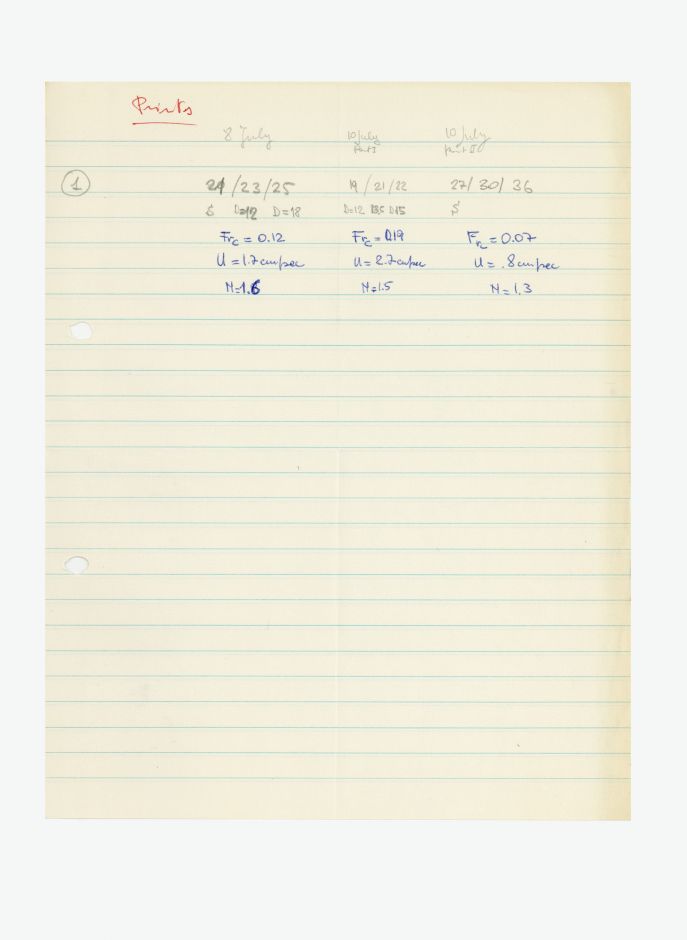 Prints
8 July 10 July 10 July
Part I Part II
1 21/23/25 19/21/22 27/30/36
D=12 D=18 D=12 13.5 D=15
Frc = 0.12 Frc = 0.19 Fr = 0.07
U = 1.7 cm/sec U = 2.7 cm/sec U = .8 cm/sec
N=1.6 N=1.5 N=1.3